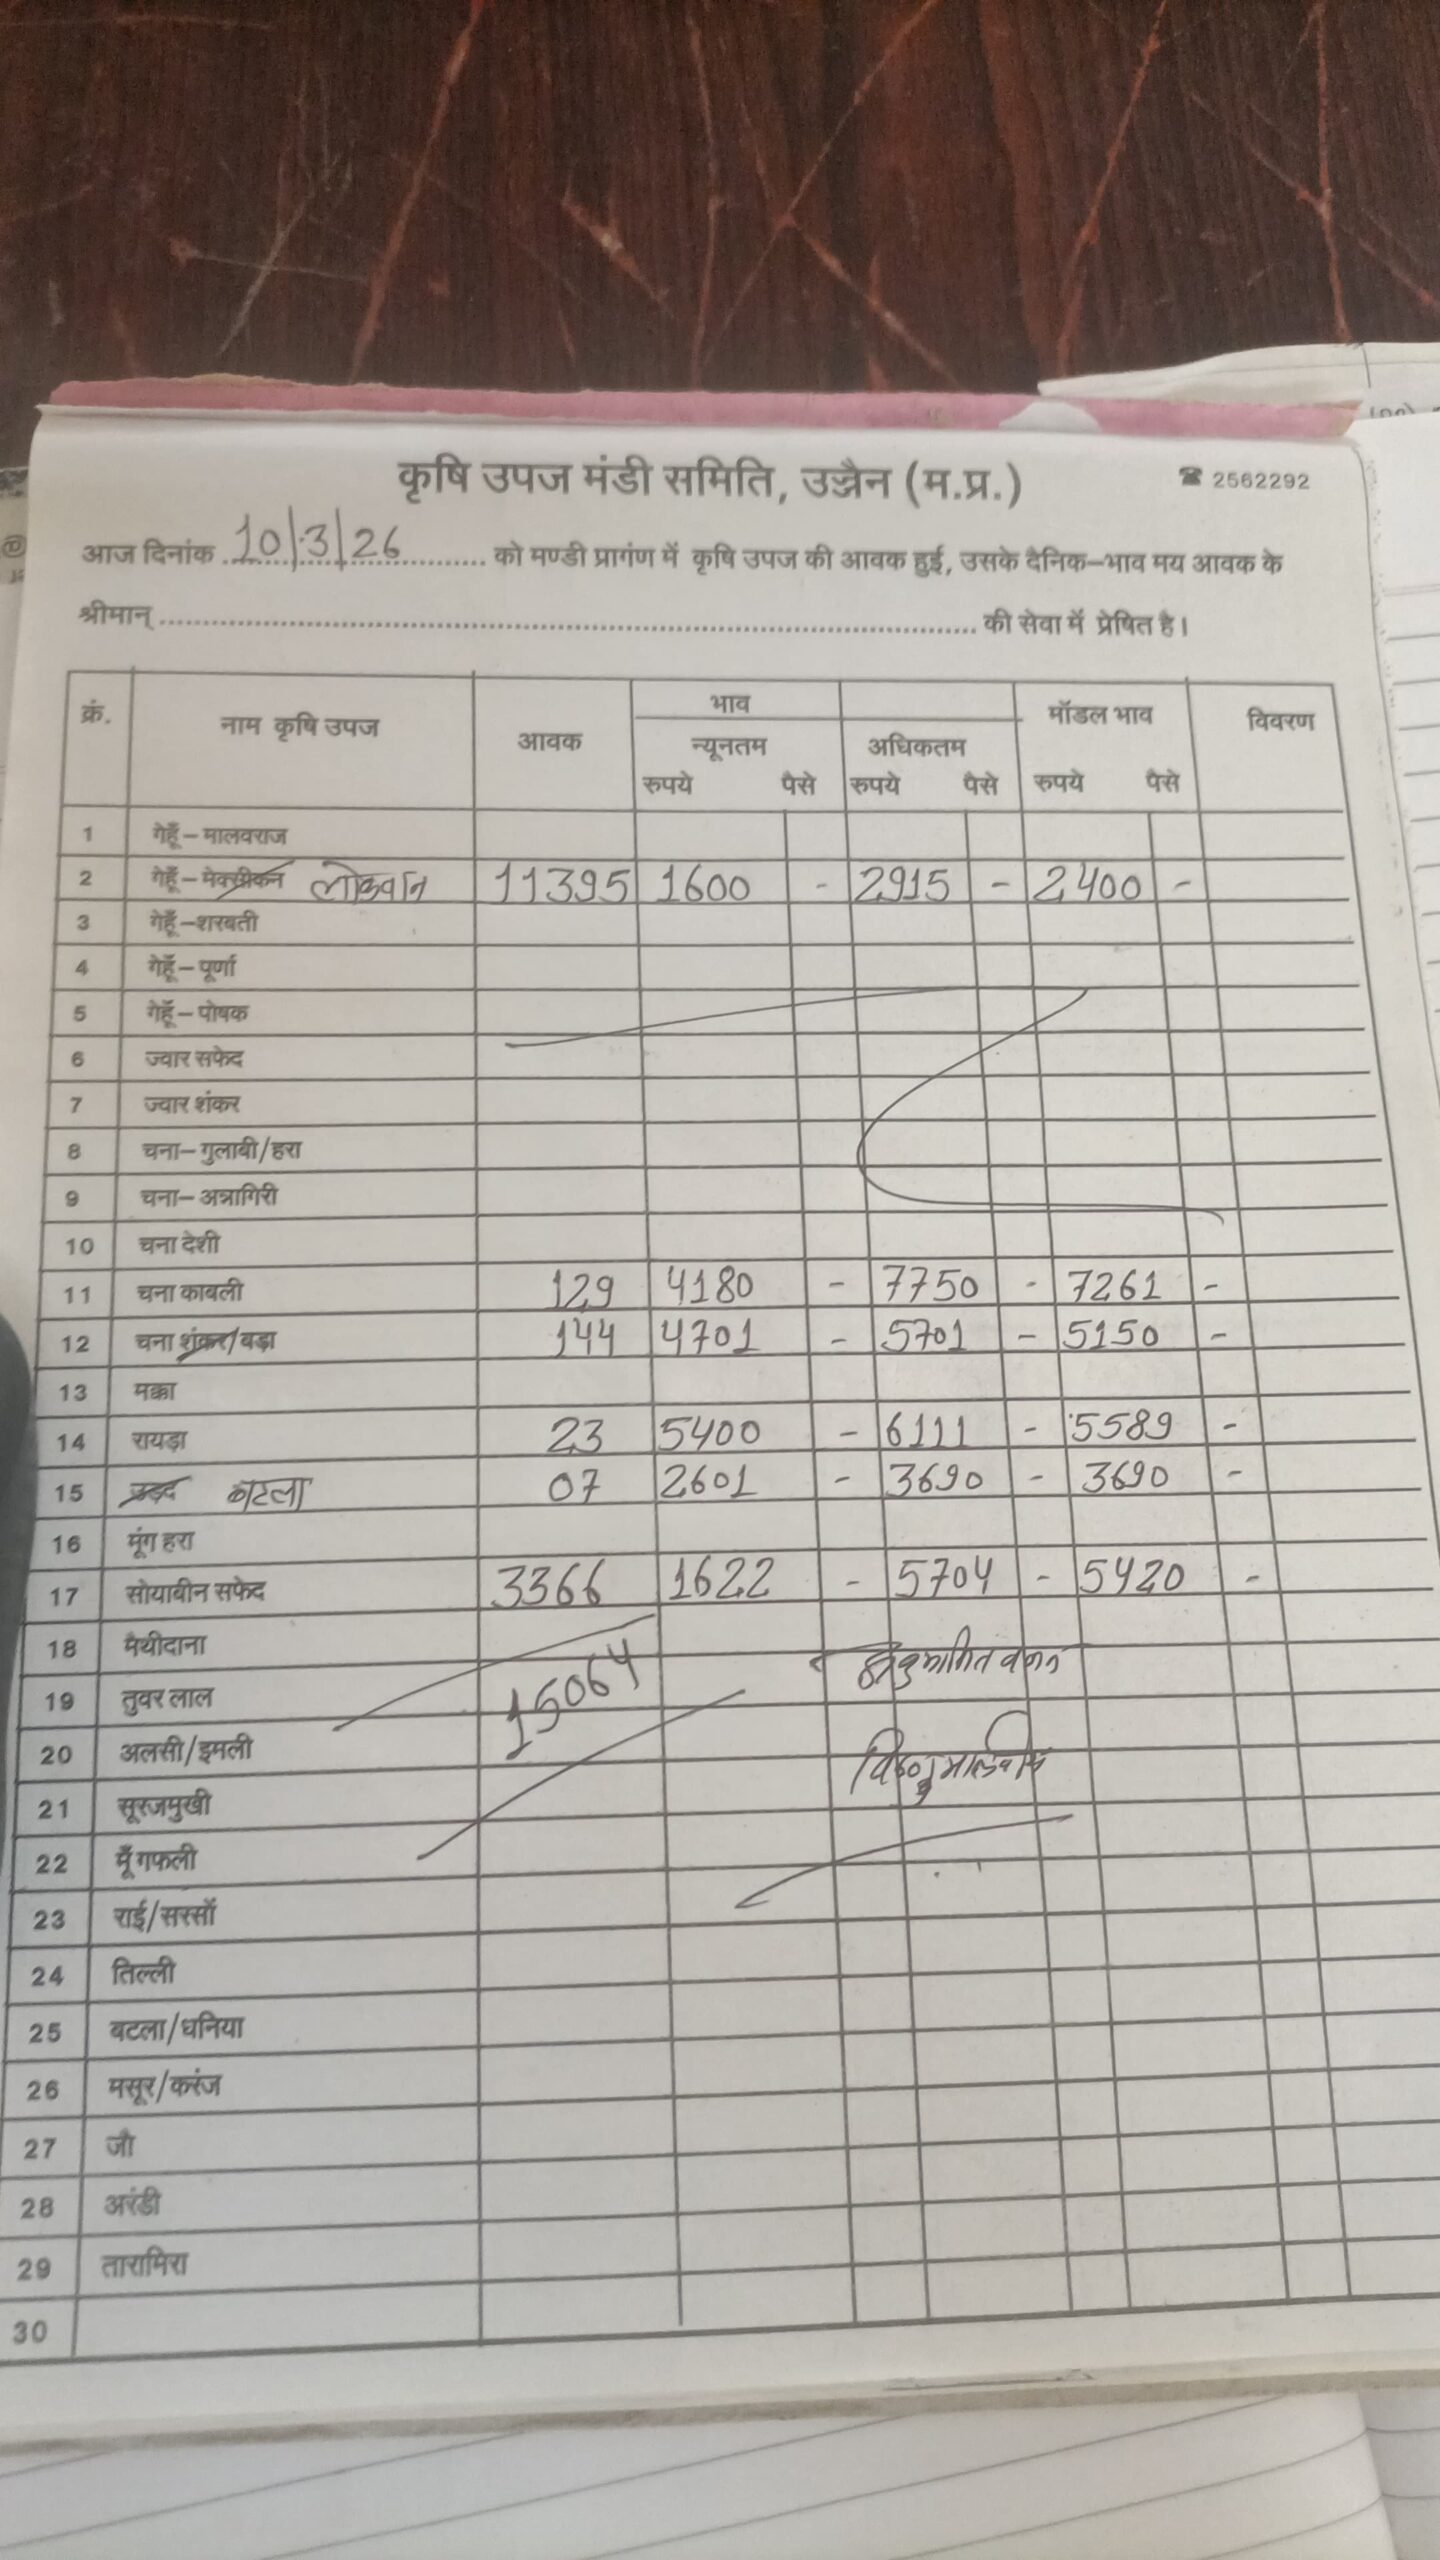 कृषि उपज मंडी समिति, उज्जैन (म.प्र.) ☎ 2562292
आज दिनांक 10/3/26 को मण्डी प्रागंण में कृषि उपज की आवक हुई, उसके दैनिक–भाव मय आवक के
श्रीमान् की सेवा में प्रेषित है।
क्रं. नाम कृषि उपज आवक भाव मॉडल भाव विवरण
न्यूनतम अधिकतम
रुपये पैसे रुपये पैसे रुपये पैसे
1 गेहूँ – मालवराज
2 गेहूँ – मेक्सीकन लोकवान 11395 1600 - 2915 - 2400 -
3 गेहूँ – शरबती
4 गेहूँ – पूर्णा
5 गेहूँ – पोषक
6 ज्वार सफेद
7 ज्वार शंकर
8 चना – गुलाबी/हरा
9 चना – अन्नागिरी
10 चना देशी
11 चना काबली 129 4180 - 7750 - 7261 -
12 चना शंकर/बड़ा 144 4701 - 5701 - 5150 -
13 मक्का
14 रायड़ा 23 5400 - 6111 - 5589 -
15 उड़द बटला 07 2601 - 3690 - 3690 -
16 मूंग हरा
17 सोयाबीन सफेद 3366 1622 - 5704 - 5420 -
18 मैथीदाना
19 तुवर लाल 15064
20 अलसी/इमली
21 सूरजमुखी
22 मूँगफली
23 राई/सरसों
24 तिल्ली
25 बटला/धनिया
26 मसूर/करंज
27 जौ
28 अरंडी
29 तारामिरा
30